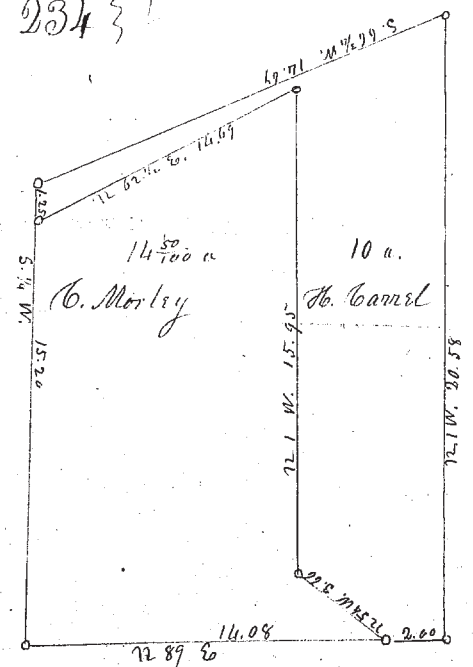 234 }
S. 66 3/4 W. 14.69
N. 62 1/2 E. 14.69
1.25
14 50/100 a
C. Morley
10 a.
H. Carrel
S. 1/4 W. 15.20
N 1 W. 15.95
N 1 W. 20.58
N 54 W. 3.60
14.08
2.00
N 89 E